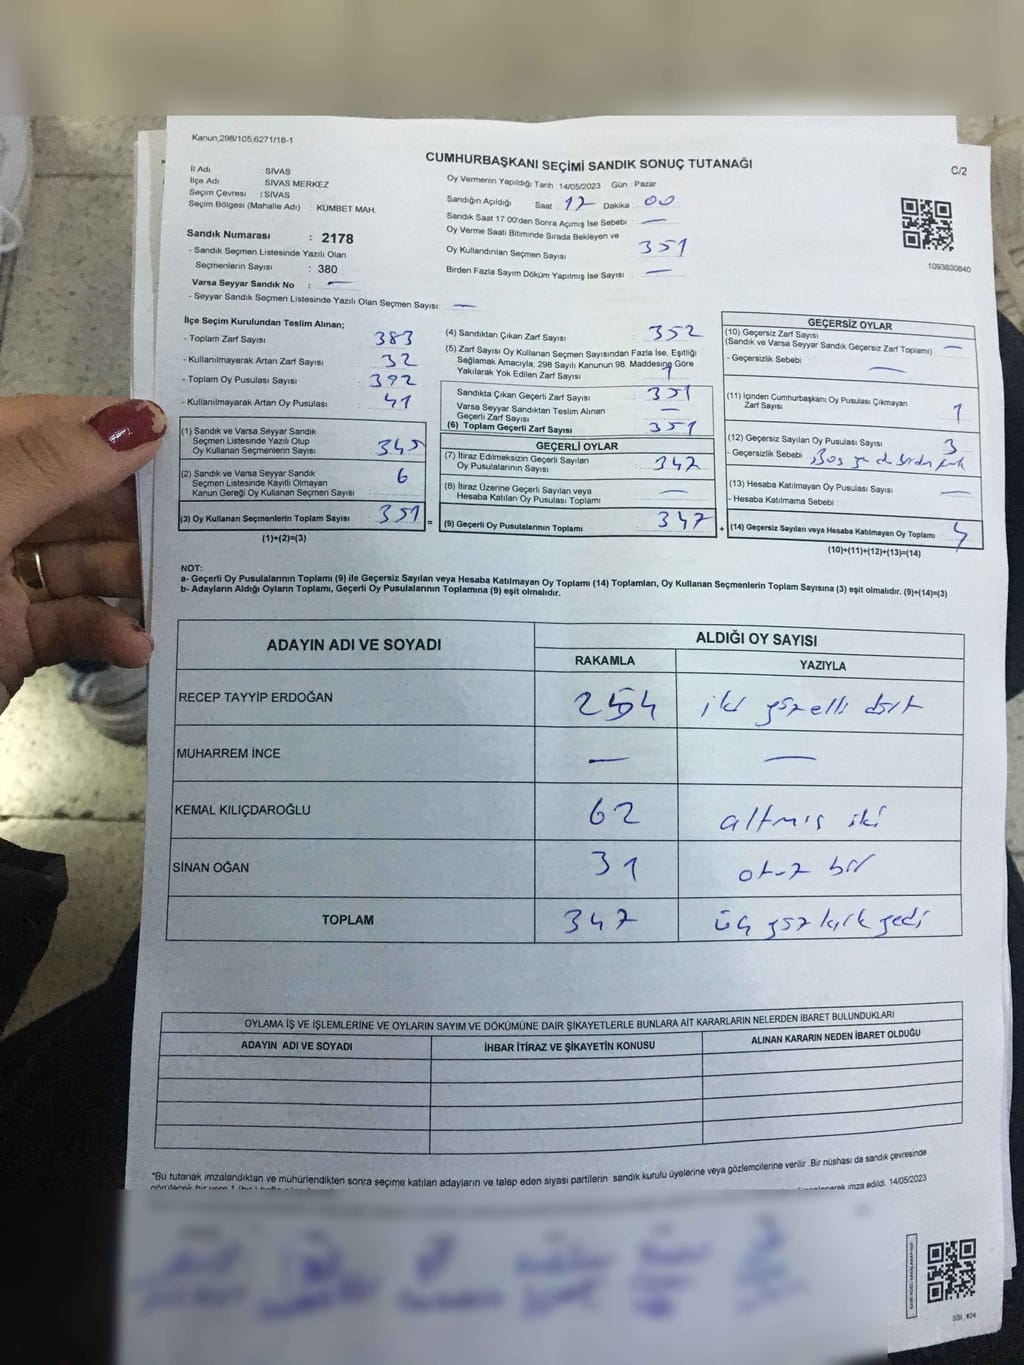 Kanun:298/105,6271/16-1
CUMHURBAŞKANI SEÇİMİ SANDIK SONUÇ TUTANAĞI
C/2
İl Adı : SİVAS
İlçe Adı : SİVAS MERKEZ
Seçim Çevresi : SİVAS
Seçim Bölgesi (Mahalle Adı) : KÜMBET MAH.
Sandık Numarası : 2178
- Sandık Seçmen Listesinde Yazılı Olan
Seçmenlerin Sayısı : 380
Varsa Seyyar Sandık No : —
- Seyyar Sandık Seçmen Listesinde Yazılı Olan Seçmen Sayısı: —
Oy Vermenin Yapıldığı Tarih : 14/05/2023 Gün : Pazar
Sandığın Açıldığı Saat 17 Dakika : 00
Sandık Saat 17:00'den Sonra Açımış İse Sebebi : —
Oy Verme Saati Bitiminde Sırada Bekleyen ve
Oy Kullandırılan Seçmen Sayısı : 351
Birden Fazla Sayım Döküm Yapılmış İse Sayısı : —
1093830840
İlçe Seçim Kurulundan Teslim Alınan;
- Toplam Zarf Sayısı : 383
- Kullanılmayarak Artan Zarf Sayısı : 32
- Toplam Oy Pusulası Sayısı : 392
- Kullanılmayarak Artan Oy Pusulası : 41
(1) Sandık ve Varsa Seyyar Sandık
Seçmen Listesinde Yazılı Olup
Oy Kullanan Seçmenlerin Sayısı : 345
(2) Sandık ve Varsa Seyyar Sandık
Seçmen Listesinde Kayıtlı Olmayan
Kanun Gereği Oy Kullanan Seçmen Sayısı : 6
(3) Oy Kullanan Seçmenlerin Toplam Sayısı : 351 =
(1)+(2)=(3)
(4) Sandıktan Çıkan Zarf Sayısı : 352
(5) Zarf Sayısı Oy Kullanan Seçmen Sayısından Fazla İse, Eşitliği
Sağlamak Amacıyla, 298 Sayılı Kanunun 98. Maddesine Göre
Yakılarak Yok Edilen Zarf Sayısı : 1
Sandıkta Çıkan Geçerli Zarf Sayısı : 351
Varsa Seyyar Sandıktan Teslim Alınan
Geçerli Zarf Sayısı : —
(6) Toplam Geçerli Zarf Sayısı : 351
GEÇERLİ OYLAR
(7) İtiraz Edilmeksizin Geçerli Sayılan
Oy Pusulalarının Sayısı : 347
(8) İtiraz Üzerine Geçerli Sayılan veya
Hesaba Katılan Oy Pusulası Toplamı : —
(9) Geçerli Oy Pusulalarının Toplamı : 347 +
GEÇERSİZ OYLAR
(10) Geçersiz Zarf Sayısı
(Sandık ve Varsa Seyyar Sandık Geçersiz Zarf Toplamı) : —
- Geçersizlik Sebebi : —
(11) İçinden Cumhurbaşkanı Oy Pusulası Çıkmayan
Zarf Sayısı : 1
(12) Geçersiz Sayılan Oy Pusulası Sayısı : 3
- Geçersizlik Sebebi : Boş
(13) Hesaba Katılmayan Oy Pusulası Sayısı : —
- Hesaba Katılmama Sebebi :
(14) Geçersiz Sayılan veya Hesaba Katılmayan Oy Toplamı : 4
(10)+(11)+(12)+(13)=(14)
NOT:
a- Geçerli Oy Pusulalarının Toplamı (9) ile Geçersiz Sayılan veya Hesaba Katılmayan Oy Toplamı (14) Toplamları, Oy Kullanan Seçmenlerin Toplam Sayısına (3) eşit olmalıdır. (9)+(14)=(3)
b- Adayların Aldığı Oyların Toplamı, Geçerli Oy Pusulalarının Toplamına (9) eşit olmalıdır.
ADAYIN ADI VE SOYADI
ALDIĞI OY SAYISI
RAKAMLA YAZIYLA
RECEP TAYYİP ERDOĞAN 254 iki yüz elli dört
MUHARREM İNCE — —
KEMAL KILIÇDAROĞLU 62 altmış iki
SİNAN OĞAN 31 otuz bir
TOPLAM 347 üç yüz kırk yedi
OYLAMA İŞ VE İŞLEMLERİNE VE OYLARIN SAYIM VE DÖKÜMÜNE DAİR ŞİKAYETLERLE BUNLARA AİT KARARLARIN NELERDEN İBARET BULUNDUKLARI
ADAYIN ADI VE SOYADI İHBAR İTİRAZ VE ŞİKAYETİN KONUSU ALINAN KARARIN NEDEN İBARET OLDUĞU
*Bu tutanak imzalandıktan ve mühürlendikten sonra seçime katılan adayların ve talep eden siyasi partilerin sandık kurulu üyelerine veya gözlemcilerine verilir. Bir nüshası da sandık çevresinde
imza edildi. 14/05/2023